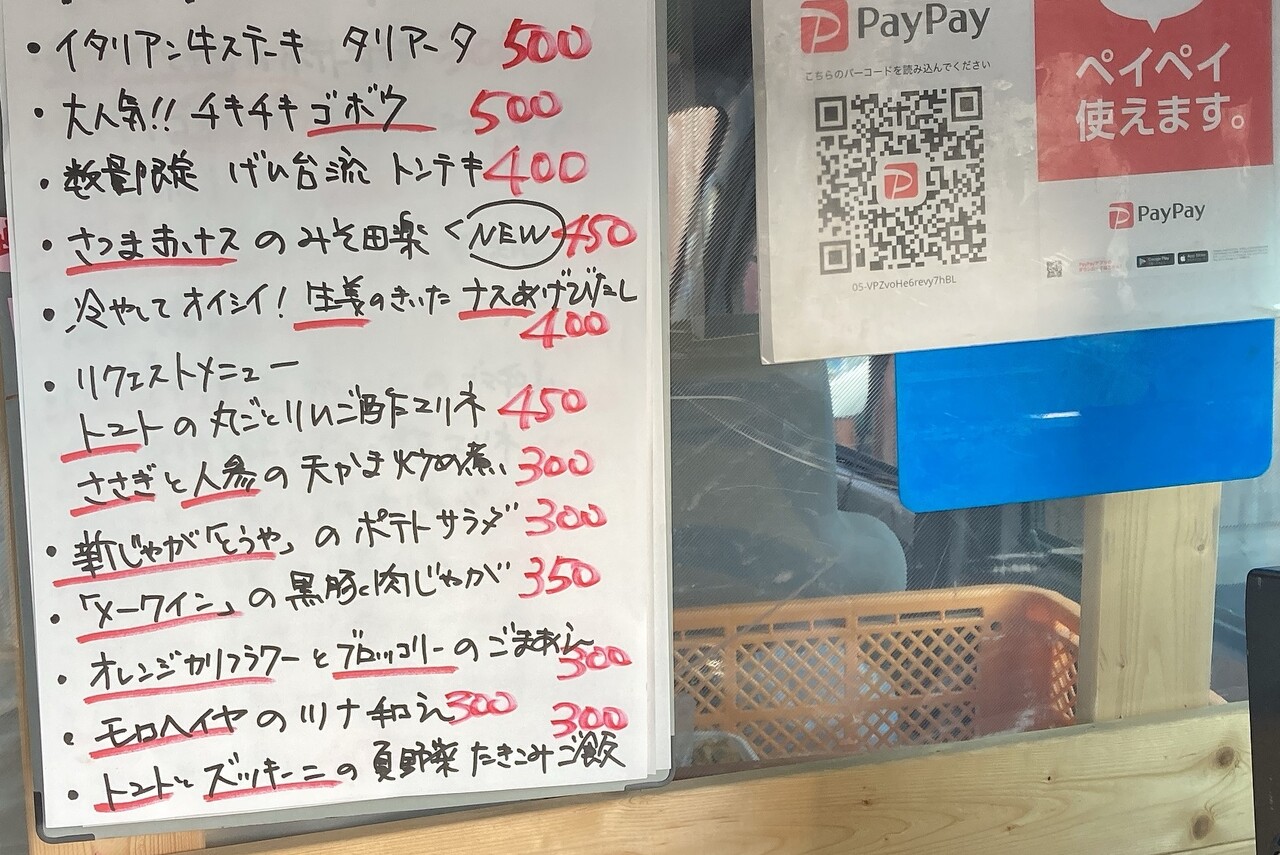 ・イタリアン牛ステーキ タリアータ 500
・大人気!! チキチキゴボウ 500
・数量限定 げん台流 トンテキ 400
・さつま赤ナスのみそ田楽 NEW 450
・冷やしてオイシイ! 生姜のきいたナスあげびたし
400
・リクエストメニュー
トマトの丸ごとりんご酢マリネ 450
ささぎと人参の天かま炒め煮 300
・新じゃが「とうや」のポテトサラダ 300
・「メークイン」の黒豚と肉じゃが 350
・オレンジカリフラワーとブロッコリーのごまあえ 300
・モロヘイヤのツナ和え 300
・トマトとズッキーニの夏野菜たきこみご飯 300
PayPay
こちらのバーコードを読み込んでください
05-VPZvoHe6revy7hBL
ペイペイ
使えます。
PayPay
Google Play
App Store